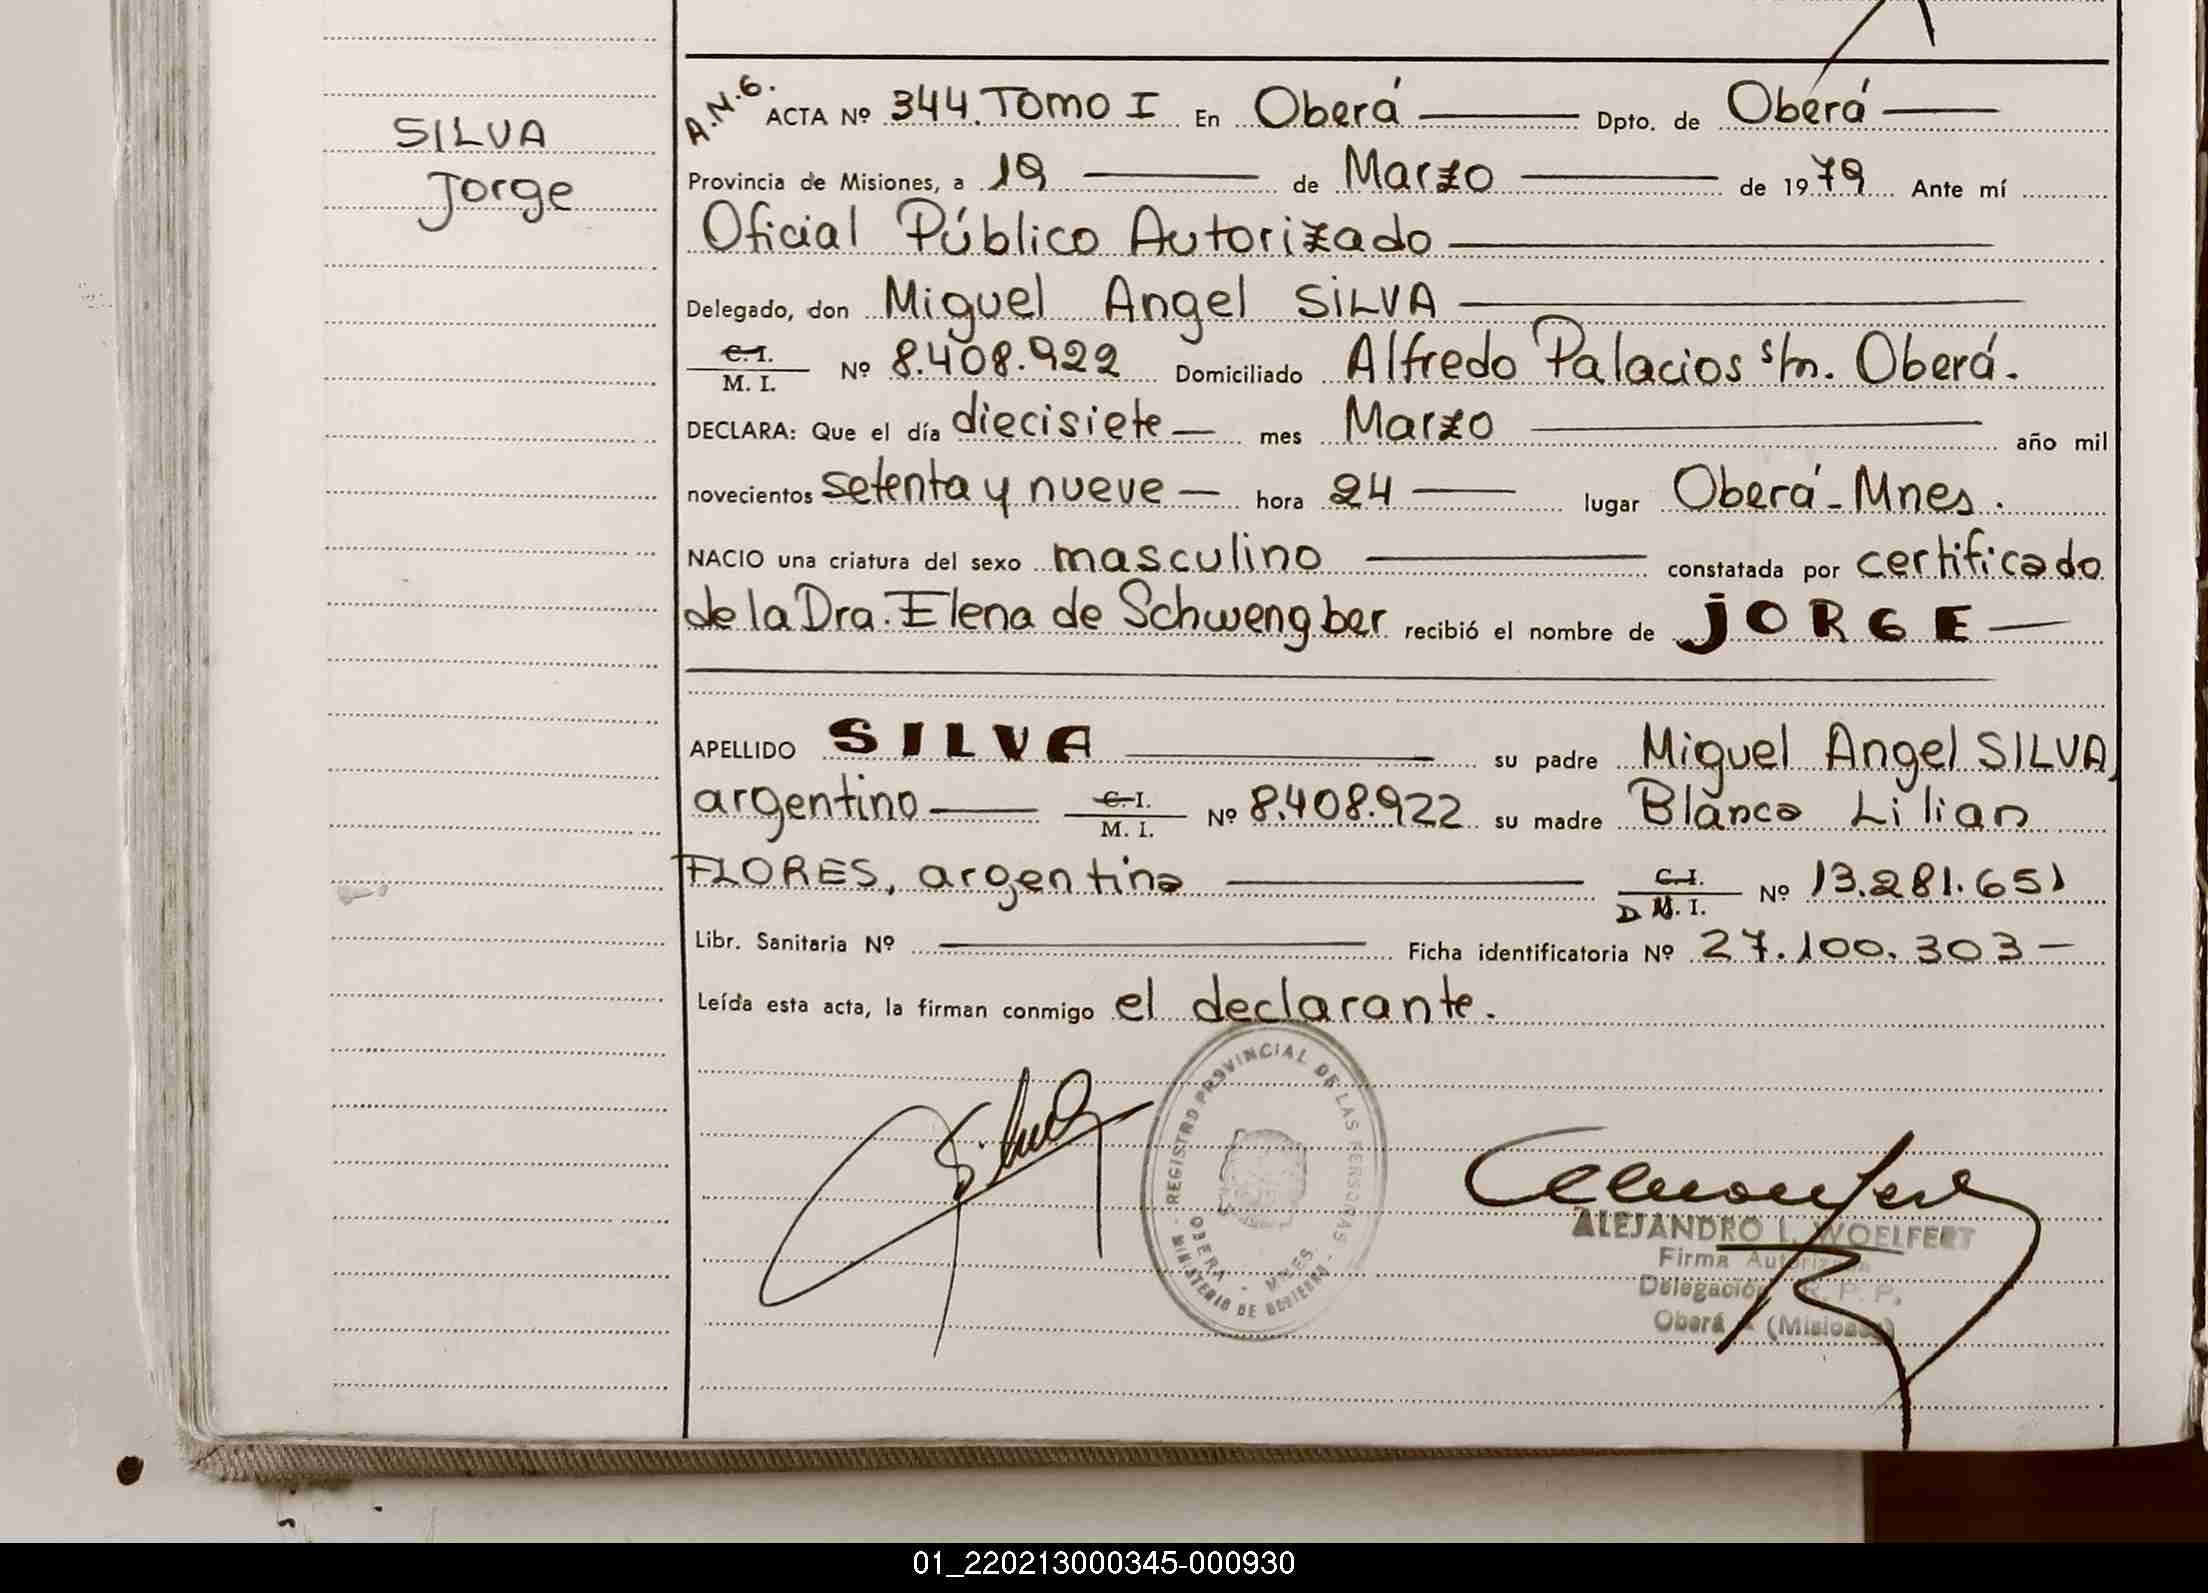 SILVA
Jorge
A.N.G. ACTA Nº 344. Tomo I En Oberá Dpto. de Oberá
Provincia de Misiones, a 19 de Marzo de 1979 Ante mí
Oficial Público Autorizado
Delegado, don Miguel Angel SILVA
C.I. / M. I. Nº 8.408.922 Domiciliado Alfredo Palacios s/n. Oberá.
DECLARA: Que el día diecisiete mes Marzo año mil
novecientos setenta y nueve hora 24 lugar Oberá-Mnes.
NACIO una criatura del sexo masculino constatada por certificado
de la Dra. Elena de Schwengber recibió el nombre de JORGE
APELLIDO SILVA su padre Miguel Angel SILVA,
argentino C.I. / M. I. Nº 8.408.922 su madre Blanca Lilian
FLORES, argentina C.I. / D M. I. Nº 13.281.651
Libr. Sanitaria Nº Ficha identificatoria Nº 27.100.303
Leída esta acta, la firman conmigo el declarante.
REGISTRO PROVINCIAL DE LAS PERSONAS
OBERA - MNES
MINISTERIO DE GOBIERNO
ALEJANDRO L. WOELFERT
Firma Autorizada
Delegación R. P. P.
Oberá (Misiones)
01_220213000345-000930